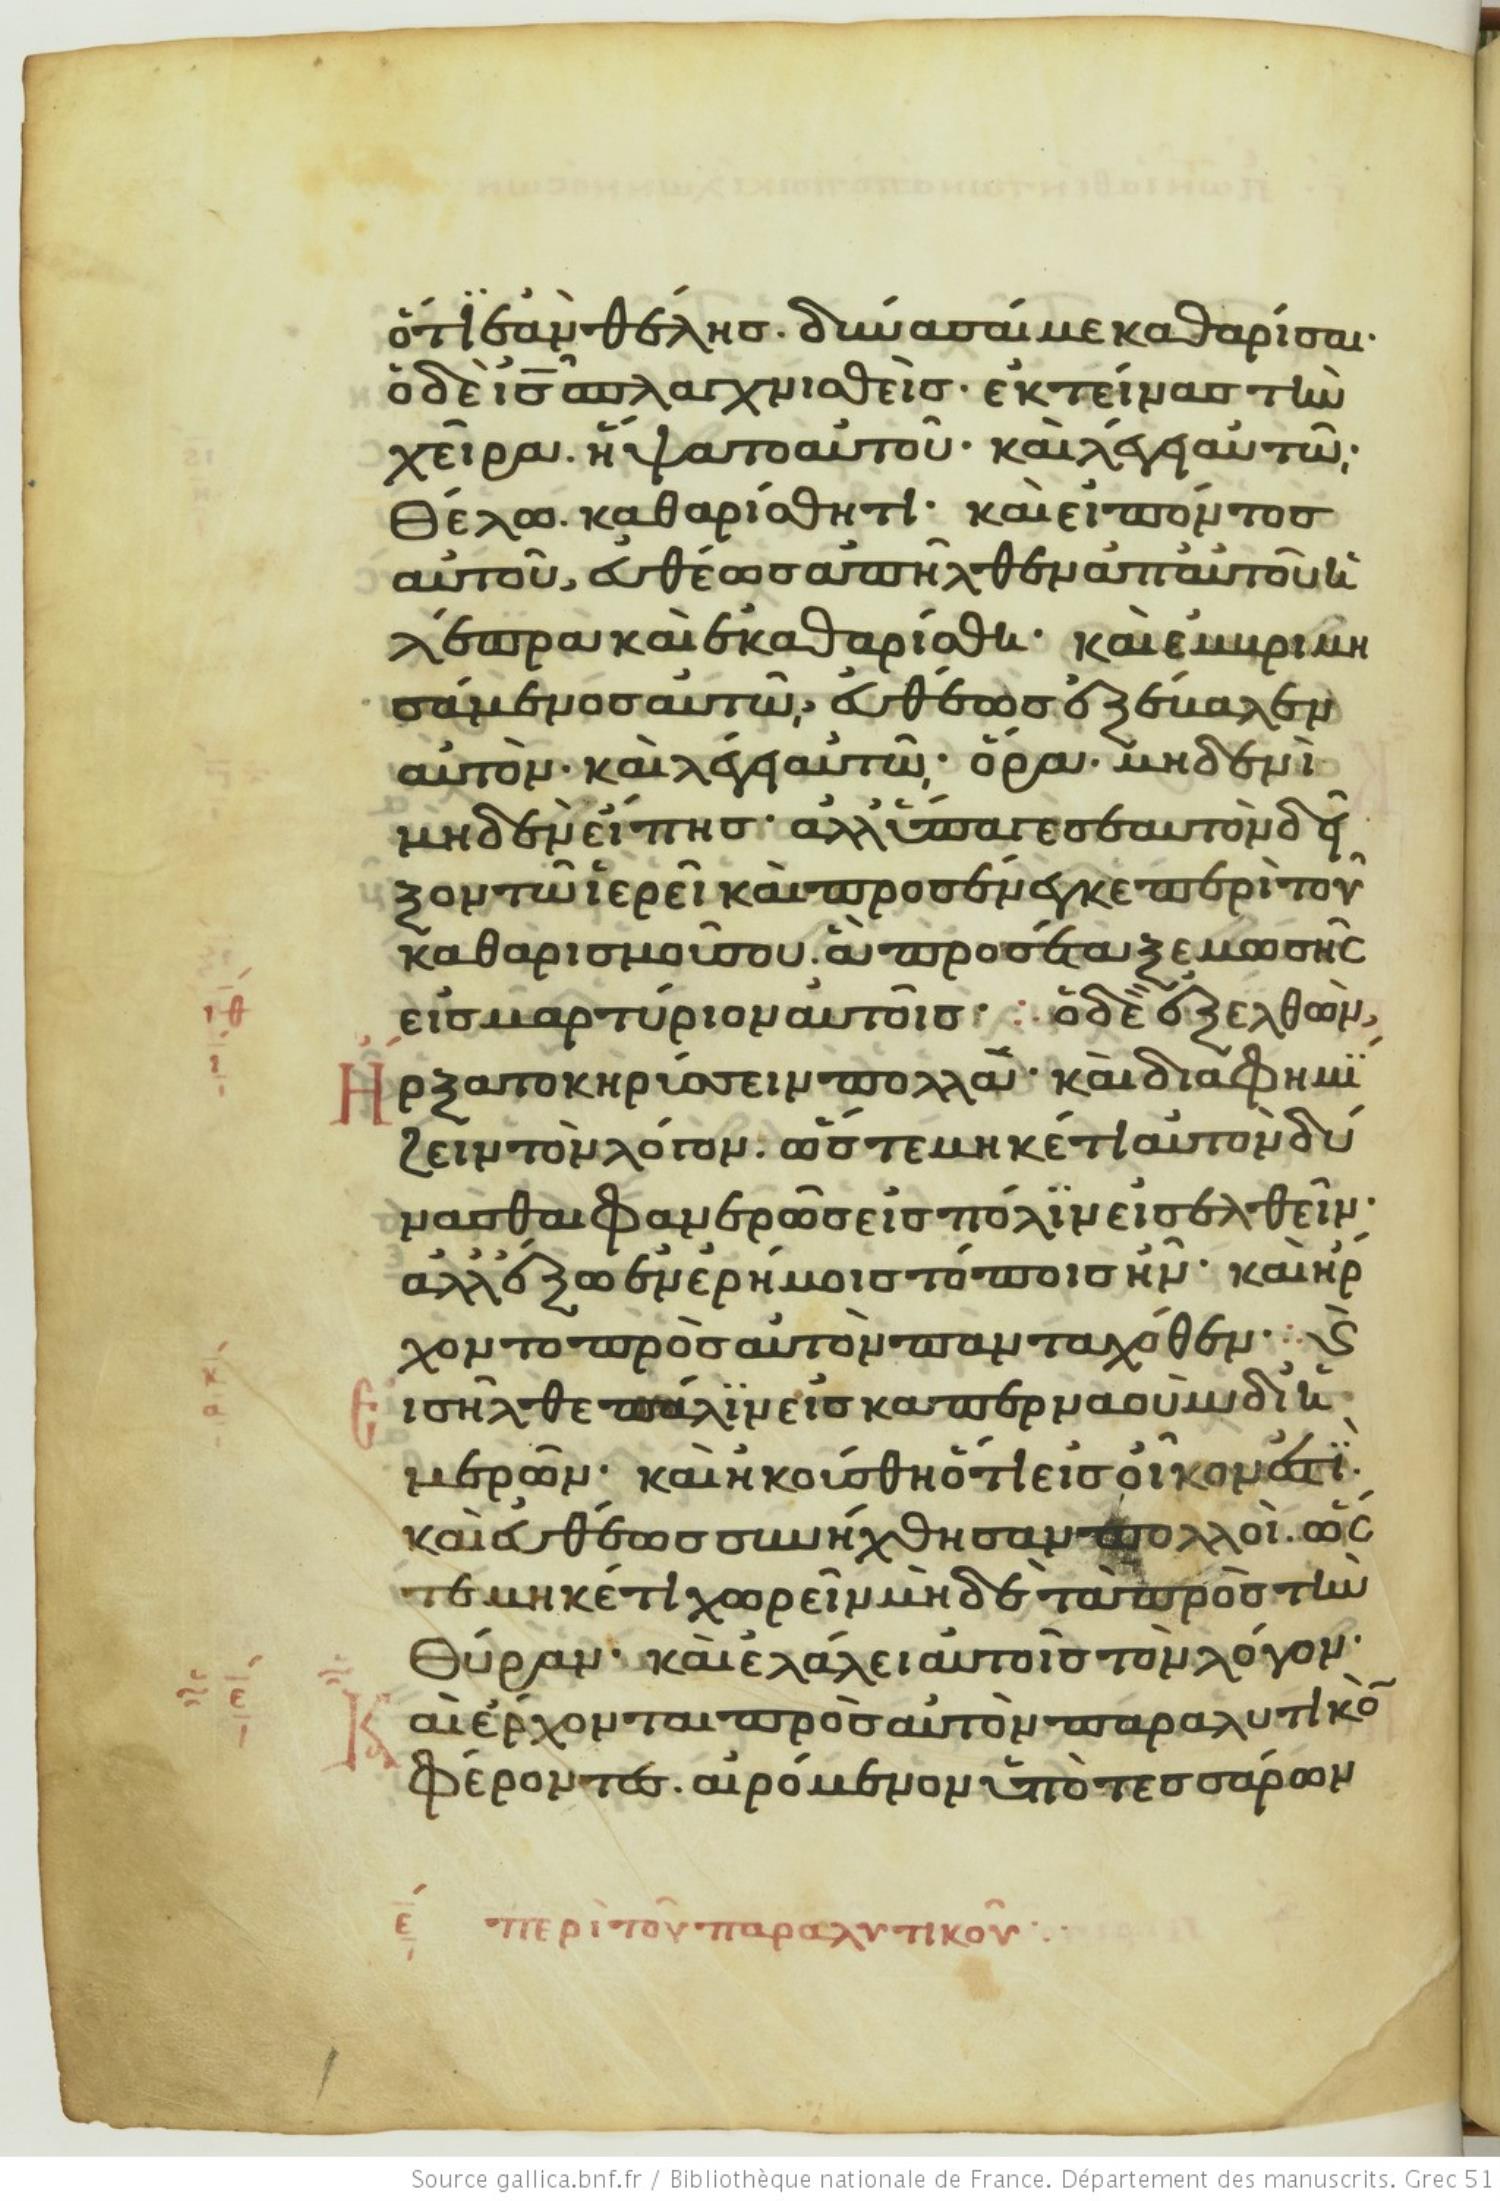 ὅτι ἐὰν θέλης· δύνασαί με καθαρίσαι·
ὁ δὲ ις σπλαγχνισθεὶς· ἐκτείνας τὴν
χεῖρα· ἥψατο αὐτοῦ· καὶ λέγει αὐτῶ·
Θέλω· καθαρίσθητι· καὶ εἰπόντος
αὐτοῦ, εὐθέως ἀπῆλθεν ἀπ αὐτοῦ ἡ
λέπρα καὶ ἐκαθαρίσθη· καὶ ἐμβριμη
σάμενος αὐτῶ, εὐθέως ἐξέβαλεν
αὐτὸν· καὶ λέγει αὐτῶ· ὅρα· μηδενὶ
μηδὲν εἴπης· ἀλλ ὕπαγε σεαυτὸν δεῖ
ξον τῶ ἱερεῖ καὶ προσένεγκε περὶ τοῦ
καθαρισμοῦ σου· ἃ προσέταξε μωσῆς
εἰς μαρτύριον αὐτοῖς· ὁ δὲ ἐξελθὼν,
ιθ
ι
Ἤρξατο κηρύσσειν πολλὰ· καὶ διαφημί
ζειν τὸν λόγον· ὥστε μηκέτι αὐτὸν δύ
νασθαι φανερῶς εἰς πόλιν εἰσελθεῖν·
ἀλλ ἔξω ἐν ἐρήμοις τόποις ἦν· καὶ ἤρ
χοντο πρὸς αὐτὸν πανταχόθεν· ϗ
κ
α
Εἰσῆλθε πάλιν εἰς καπερναοὺμ δι ἡ
μερῶν· καὶ ἠκούσθη ὅτι εἰς οἶκον ἐστὶ·
καὶ εὐθέως συνήχθησαν πολλοὶ· ὥσ
τε μηκέτι χωρεῖν μὴδὲ τὰ πρὸς τὴν
Θύραν· καὶ ἐλάλει αὐτοῖς τὸν λόγον·
ε
Καὶ ἔρχονται πρὸς αὐτὸν παραλυτικὸ
φέροντες· αἰρόμενον ὑπὸ τεσσάρων
ε περὶ τοῦ παραλυτικοῦ
Source gallica.bnf.fr / Bibliothèque nationale de France. Département des manuscrits. Grec 51